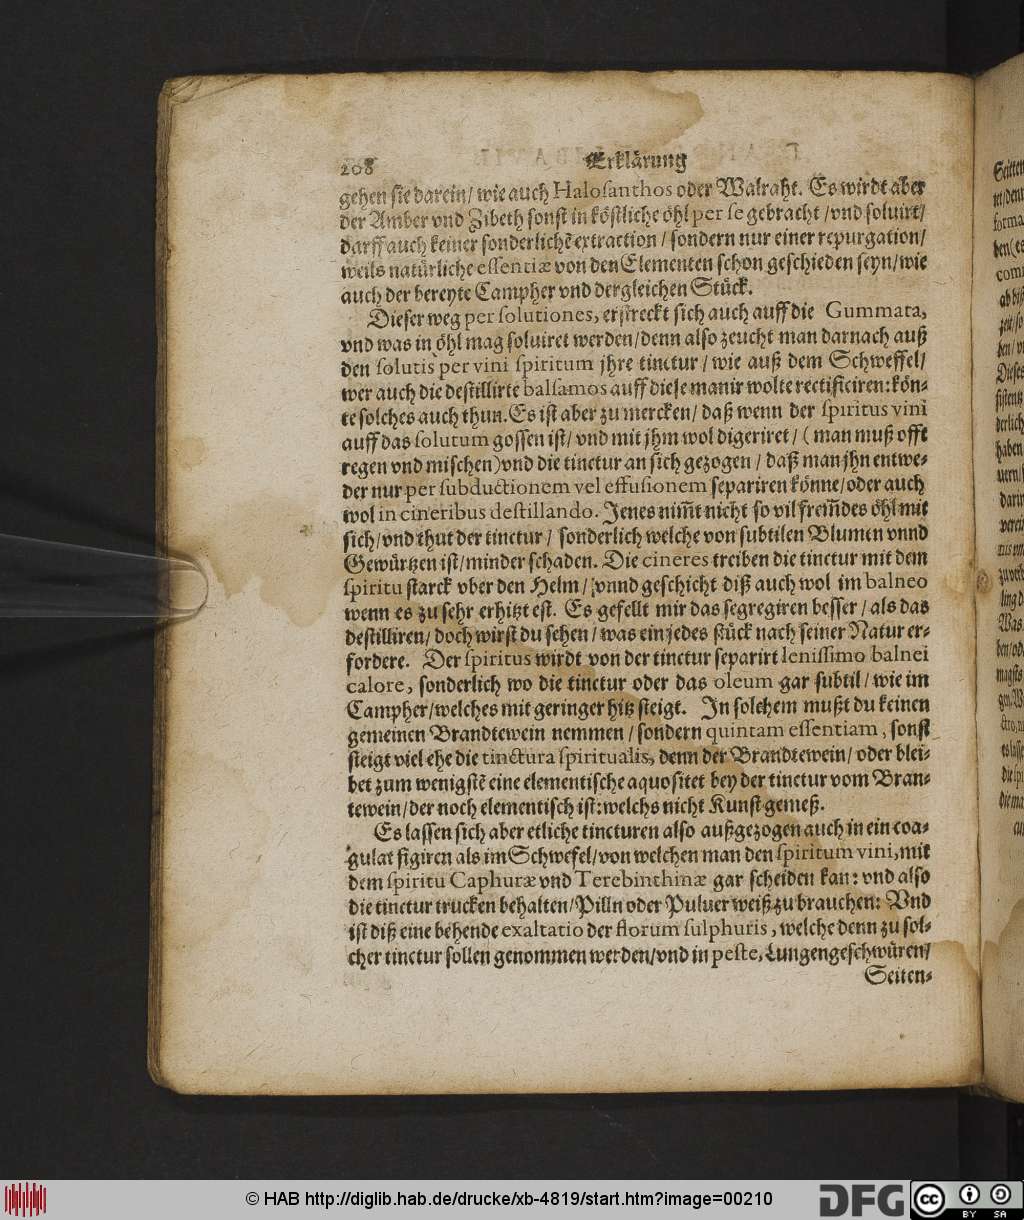 208 Erklärung
gehen sie darein/ wie auch Halosanthos oder Walraht. Es wirdt aber
der Amber vnd Zibeth sonst in köstliche öhl per se gebracht/ vnd soluirt/
darff auch keiner sonderlichē extraction/ sondern nur einer repurgation/
weils natürliche essentiæ von den Elementen schon geschieden seyn/ wie
auch der bereyte Campher vnd dergleichen Stück.
Dieser weg per solutiones, erstreckt sich auch auff die Gummata,
vnd was in öhl mag soluiret werden/ denn also zeucht man darnach auß
den solutis per vini spiritum jhre tinctur/ wie auß dem Schweffel/
wer auch die destillirte balsamos auff diese manir wolte rectificiren: kön-
te solches auch thun. Es ist aber zu mercken/ daß wenn der spiritus vini
auff das solutum gossen ist/ vnd mit jhm wol digeriret/ (man muß offt
regen vnd mischen) vnd die tinctur an sich gezogen/ daß man jhn entwe-
der nur per subductionem vel effusionem separiren könne/ oder auch
wol in cineribus destillando. Jenes nim̃t nicht so vil frem̃des öhl mit
sich/ vnd thut der tinctur/ sonderlich welche von subtilen Blumen vnnd
Gewürtzen ist/ minder schaden. Die cineres treiben die tinctur mit dem
spiritu starck vber den Helm/ vnnd geschicht diß auch wol im balneo
wenn es zu sehr erhitzt est. Es gefellt mir das segregiren besser/ als das
destilliren/ doch wirst du sehen/ was ein jedes stück nach seiner Natur er-
fordere. Der spiritus wirdt von der tinctur separirt lenissimo balnei
calore, sonderlich wo die tinctur oder das oleum gar subtil/ wie im
Campher/ welches mit geringer hitz steigt. In solchem mußt du keinen
gemeinen Brandtewein nemmen/ sondern quintam essentiam, sonst
steigt viel ehe die tinctura spiritualis, denn der Brandtewein/ oder blei-
bet zum wenigstē eine elementische aquositet bey der tinctur vom Bran-
tewein/ der noch elementisch ist: welchs nicht Kunst gemeß.
Es lassen sich aber etliche tincturen also außgezogen auch in ein coa-
gulat figiren als im Schwefel/ von welchen man den spiritum vini, mit
dem spiritu Caphuræ vnd Terebinthinæ gar scheiden kan: vnd also
die tinctur trucken behalten/ Pilln oder Puluer weiß zu brauchen: Vnd
ist diß eine behende exaltatio der florum sulphuris, welche denn zu sol-
cher tinctur sollen genommen werden/ vnd in peste, Lungengeschwüren/
Seiten-
© HAB http://diglib.hab.de/drucke/xb-4819/start.htm?image=00210
DFG
cc BY SA